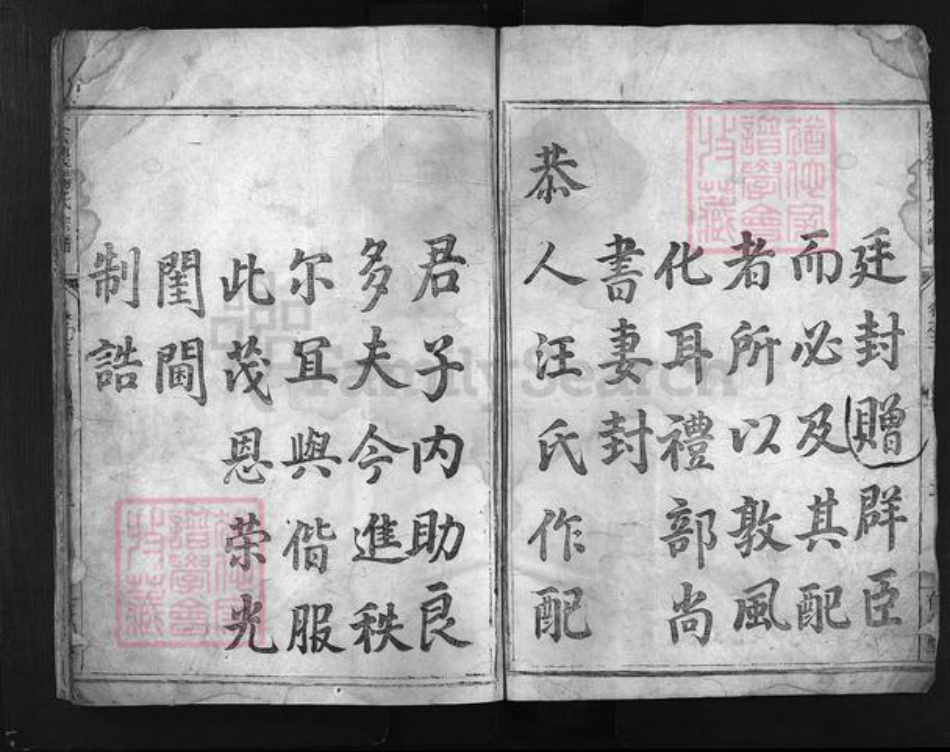 廷封贈群臣
而必及其配
者所以敦風
化耳禮部尚
書妻封
恭人汪氏作配
君子内助良
多夫今進秩
尔宜與偕服
此茂恩荣光
閨閫
制誥
FamilySearch